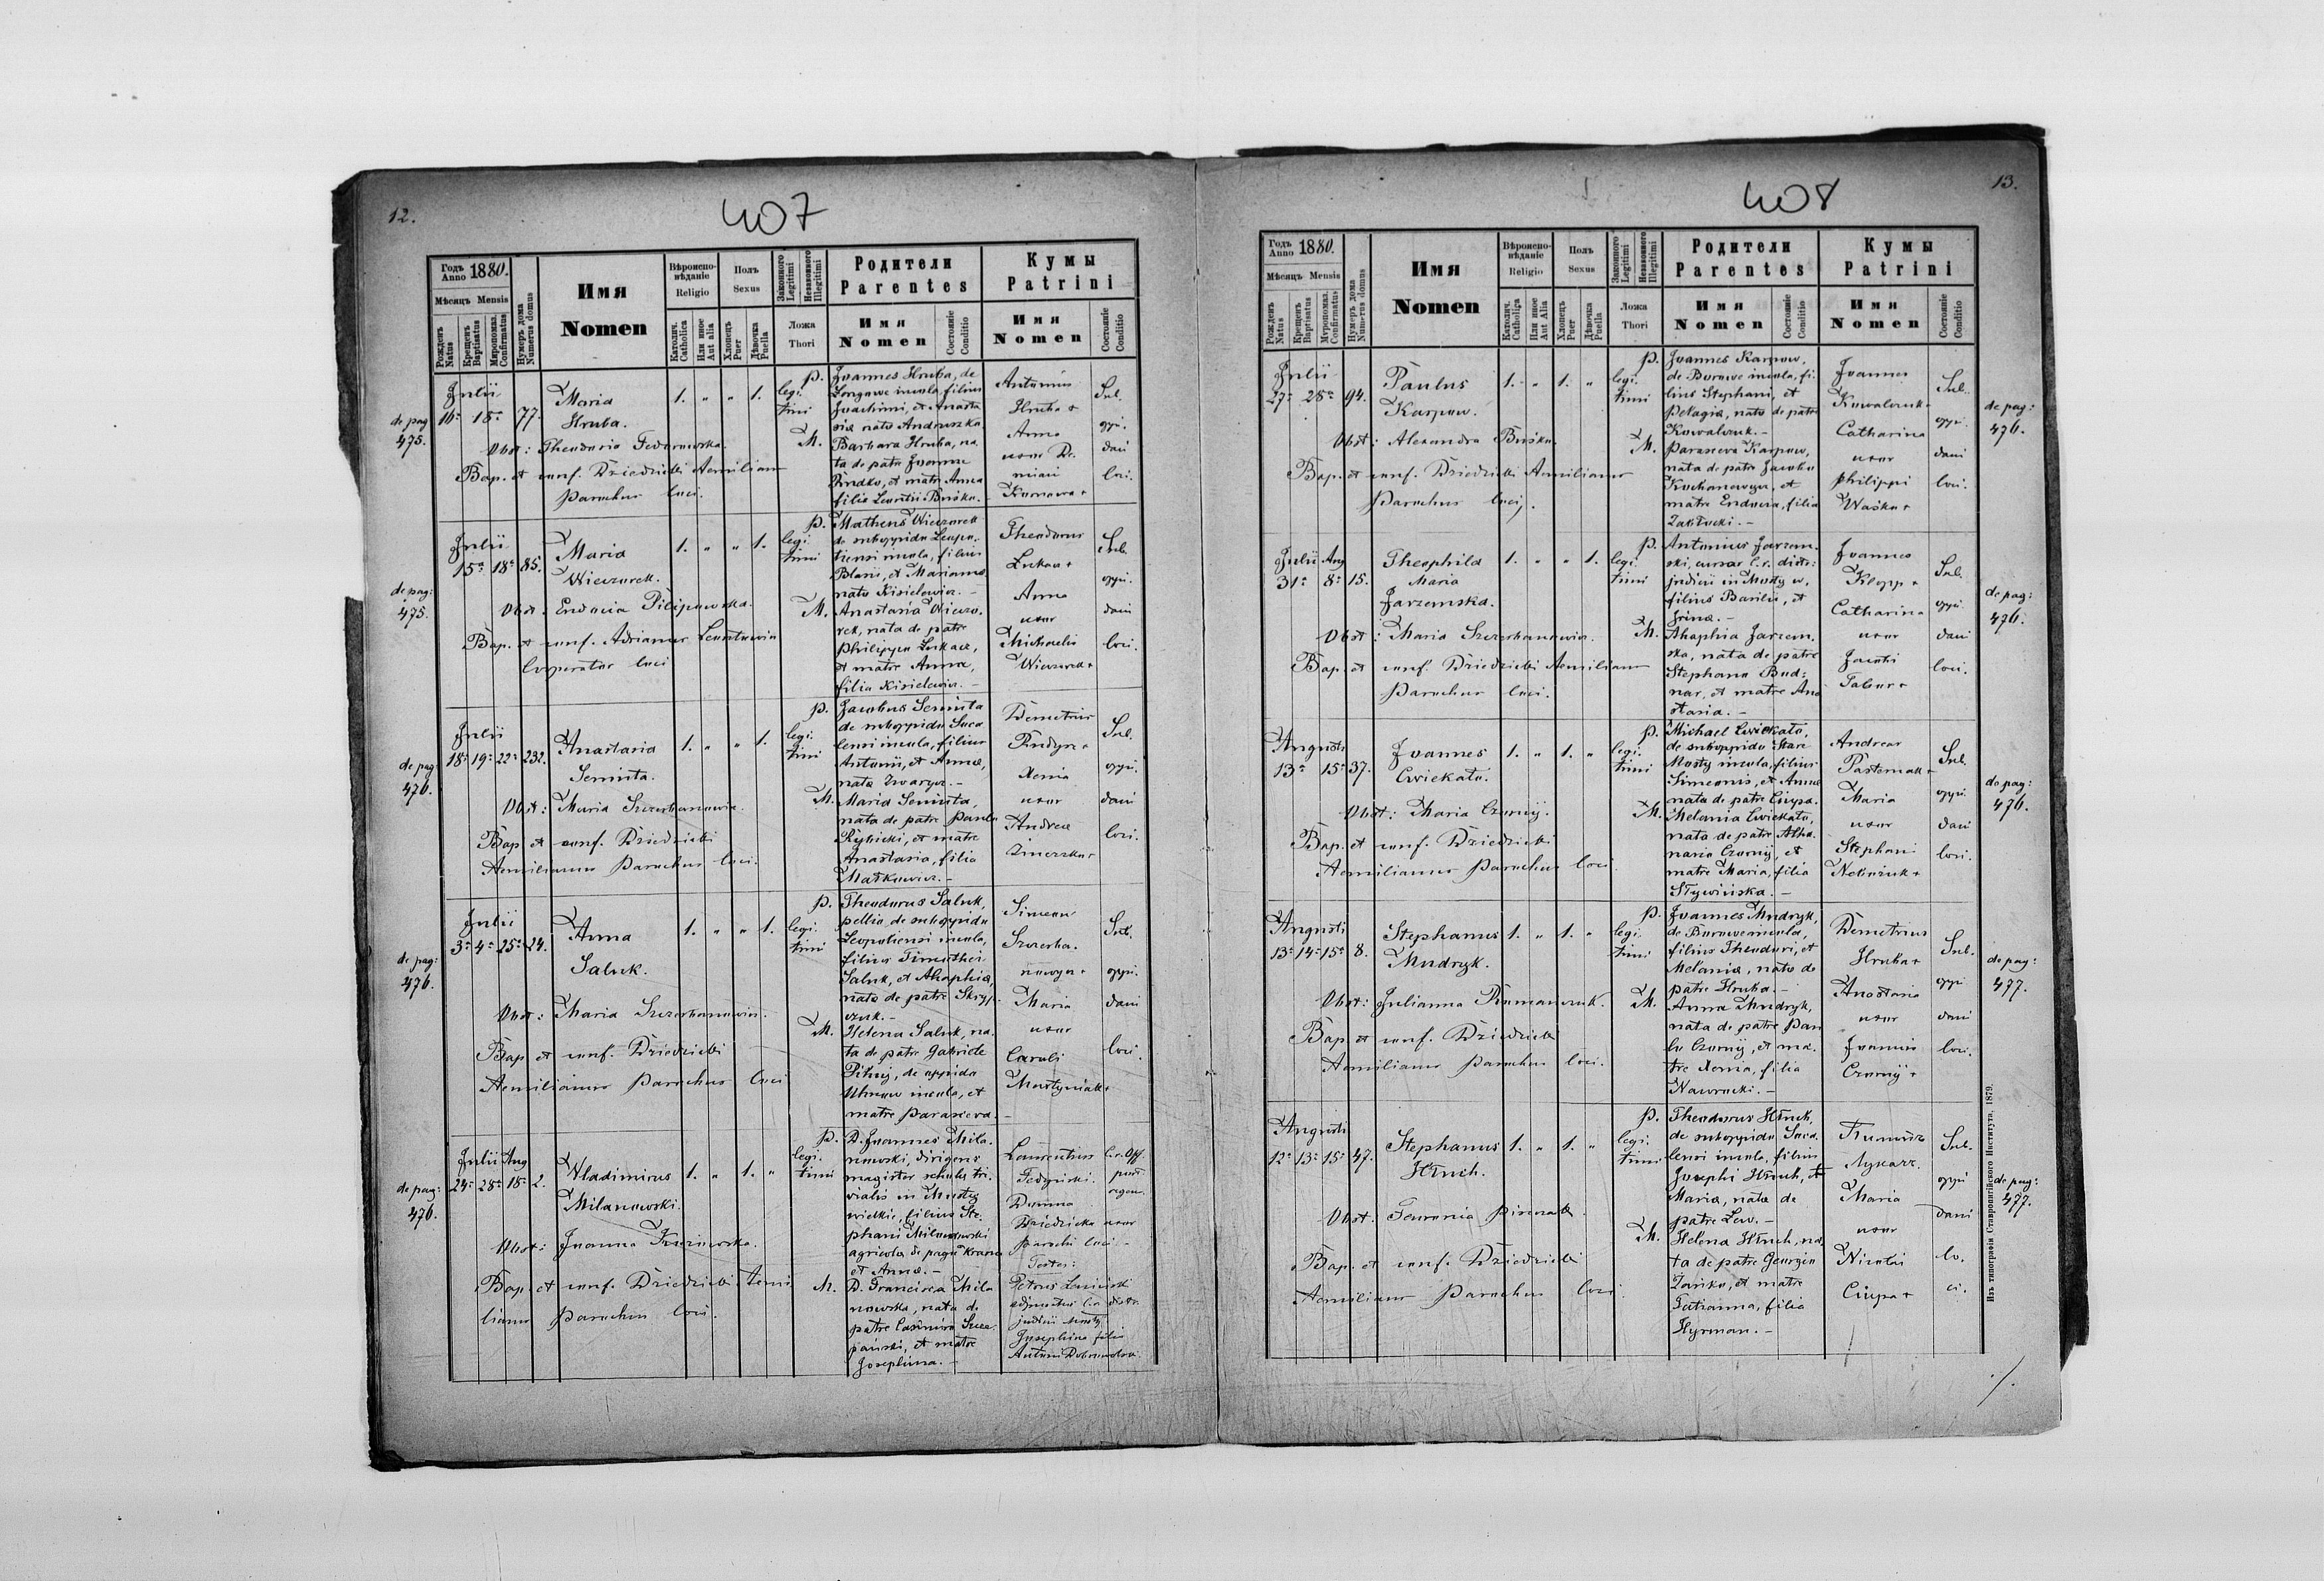 12.
407
Годъ Anno 1880.
Мѣсяцъ Mensis
Рожденъ Natus
Крещенъ Baptisatus
Миропомаз. Confirmatus
Нумеръ дома Numerus domus
Имя
Nomen
Вѣроиспо-
вѣданіе
Religio
Католич. Catholica
Или иное Aut alia
Полъ
Sexus
Хлопецъ Puer
Дѣвочка Puella
Законного Legitimi
Незаконного Illegitimi
Ложа
Thori
Родители
Parentes
Имя
Nomen
Состояніе Conditio
Кумы
Patrini
Имя
Nomen
Состояніе Conditio
de pag
475.
Julii
16 18 77.
Maria
Hruba.
1. " " 1.
legi.
timi
Obst: Theodoria Fedorowska.
Bap. et conf. Dziedzicki Aemilianus
Parochus loci.
P. Joannes Hruba, de
incola, filius
Joachimi, et Anasta
sia nata Andruszka.
M. Barbara Hruba, na.
ta de patre Joanne
Rudko, et matre Anna
filia Leontii Buśko.
Antonius
Hruba +
Anna
uxor Da
miani
Sub.
oppi.
dani
loci.
de pag:
475.
Julii
15 18 85.
Maria
Wieczorek.
1. " " 1.
legi.
timi
Obst. Eudocia Pilipowska.
Bap. et conf. Adrianus Leontowicz
Cooperator loci
P. Matheus Wieczorek
de suboppido Leopo.
liensi incola, filius
Blasii, et Marianna
nata Kisielewicz. -
M. Anastasia Wieczo.
rek, nata de patre
Philippo Lukacz,
et matre Anna,
filia Kisielewicz. -
Theodorus
Lukacz +
Anna
uxor
Michaelis
Wieczorek +
Sub.
oppi.
dani
loci.
de pag:
476.
Julii
18 19 22 232.
Anastasia
Seniuta.
1. " " 1.
legi.
timi
Obst: Maria Szczerbanowicz.
Bap et conf. Dziedzicki
Aemilianus Parochus loci.
P. Jacobus Seniuta
de suboppido Soca
lensi incola, filius
Antonii, et Anna,
nata Zwarycz. -
M. Maria Seniuta,
nata de patre Paulo
Rybicki, et matre
Anastasia, filia
Matkowicz. -
Demetrius
Xenia
uxor
Andreae
Sub.
oppi.
dani
loci.
de pag:
476.
Julii
3 4 25 24.
Anna
Saluk.
1. " " 1.
legi.
timi
Obst: Maria Szczerbanowicz.
Bap et conf. Dziedzicki
Aemilianus Parochus loci
P. Theodorus Saluk,
pellio, de suboppido
Leopoliensi incola,
filius Timothei
Saluk, et Ahaphia,
nata de patre Skryp.
czuk. -
M. Helena Saluk, na.
ta de patre Gabriele
Pihuj, de oppido
Uhnow incola, et
matre Parasceva. -
Simeon
Szczerba.
nowycz +
Maria
uxor
Caroli
Mostyniak +
Sub.
oppi.
dani
loci.
de pag:
476.
Julii Aug
24 28 18 2.
Wladimirus
Milanowski.
1. " 1. "
legi.
timi
Obst: Joanna Kuzniewska.
Bap. et conf. Dziedzicki Aemi
lianus Parochus loci.
P. D. Joannes Mila.
nowski, dirigens
magister scholae tri.
vialis in Mosty
wielkie, filius Ste.
phani Milanowski
agricola de pago Krasne
et Anna. -
M. D. Francisca Mila
nowska, nata de
patre Casimiro Szcze
pański, et matre
Josephina. -
Laurentius
Fedyński.
Domna
Dziedzicka uxor
Parochi loci -
Testes:
Petrus Leninski
judicii Mosty
Josephina filia
Antoni Dobrowolska
13.
408
Годъ Anno 1880.
Мѣсяцъ Mensis
Рожденъ Natus
Крещенъ Baptisatus
Миропомаз. Confirmatus
Нумеръ дома Numerus domus
Имя
Nomen
Вѣроиспо-
вѣданіе
Religio
Католич. Catholica
Или иное Aut Alia
Полъ
Sexus
Хлопецъ Puer
Дѣвочка Puella
Законного Legitimi
Незаконного Illegitimi
Ложа
Thori
Родители
Parentes
Имя
Nomen
Состояніе Conditio
Кумы
Patrini
Имя
Nomen
Состояніе Conditio
Julii
27 28 94.
Paulus
Karpow.
1. " 1. "
legi.
timi
Obst: Alexandra Buśko.
Bap. et conf. Dziedzicki Aemilianus
Parochus loci.
P. Joannes Karpow,
de Borowe incola, fi.
lius Stephani, et
Pelagia, nata de patre
Kowalczuk. -
M. Parasceva Karpow,
nata de patre Jacobo
Kochanowycz, et
matre Eudocia, filia
Zakłucki. -
Joannes
Kowalczuk +
Catharina
uxor
Philippi
Waśko +
Sub.
oppi.
dani
loci.
de pag:
476.
Julii Aug
31 8 15.
Theophila
Maria
Jarzemska.
1. " " 1.
legi.
timi
Obst: Maria Szczerbanowicz.
Bap. et conf Dziedzicki Aemilianus
Parochus loci.
P. Antonius Jarzem.
ski, cursor c.r. distr:
judicii in Mosty w,
filius Basilii, et
Irina. -
M. Ahaphia Jarzem.
ska, nata de patre
Stephano Bod:
nar, et matre Ana
stasia. -
Joannes
Klopp +
Catharina
uxor
Jacobi
Sub.
oppi.
dani
loci.
de pag:
476.
Augusti
13 15 37.
Joannes
Cwiekało.
1. " 1. "
legi.
timi
Obst: Maria Czornij.
Bap. et conf. Dziedzicki
Aemilianus Parochus loci
P. Michael Cwiekało,
de suboppido Stare
Mosty incola, filius
Simeonis, et Anna
nata de patre Ciupa.
M. Melania Cwiekało,
nata de patre Atha.
nasio Czornij, et
matre Maria, filia
Slywińska. -
Andreas
Pasternak +
Maria
uxor
Stephani
Sub.
oppi.
dani
loci.
de pag:
476.
Augusti
13 14 15 8.
Stephanus
Mudryk.
1. " 1. "
legi.
timi
Obst: Julianna Romanczuk.
Bap et conf. Dziedzicki
Aemilianus Parochus loci.
P. Joannes Mudryk,
de Borowe incola,
filius Theodori, et
Melania, nata de
patre Hruba. -
M. Anna Mudryk,
nata de patre Pau
lo Czornij, et ma.
tre Xenia, filia
Nawrocki. -
Demetrius
Hruba +
Anastasia
uxor
Joannis
Czornij +
Sub.
oppi
dani
loci.
de pag:
477.
Augusti
12 13 15 47.
Stephanus
Hnuch.
1. " 1. "
legi.
timi
Obst.
Bap. et conf. Dziedzicki
Aemilianus Parochus loci.
P. Theodorus Hnuch,
de suboppido Soca.
lensi incola, filius
Josephi Hnuch, et
Maria, nata de
patre Lew. -
M. Helena Hnuch, na.
ta de patre Georgio
Zańko, et matre
Tatianna, filia
Hyrman. -
Лукачъ.
Maria
uxor
Nicolai
Ciupa +
Sub.
oppi
dani
lo.
ci.
de pag:
477.
Изъ типографіи Ставропигійского Института. 1879.